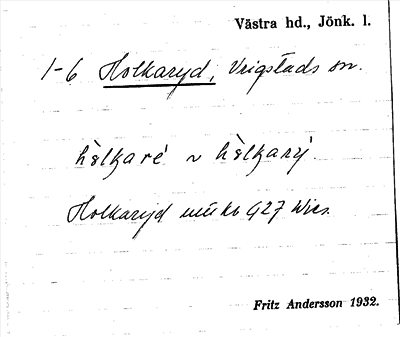 Västra hd., Jönk. l.
1-6 Holkaryd, Vrigstads sn.
hòlkaré ~ hòlkarý.
Holkaryd
Fritz Andersson 1932.